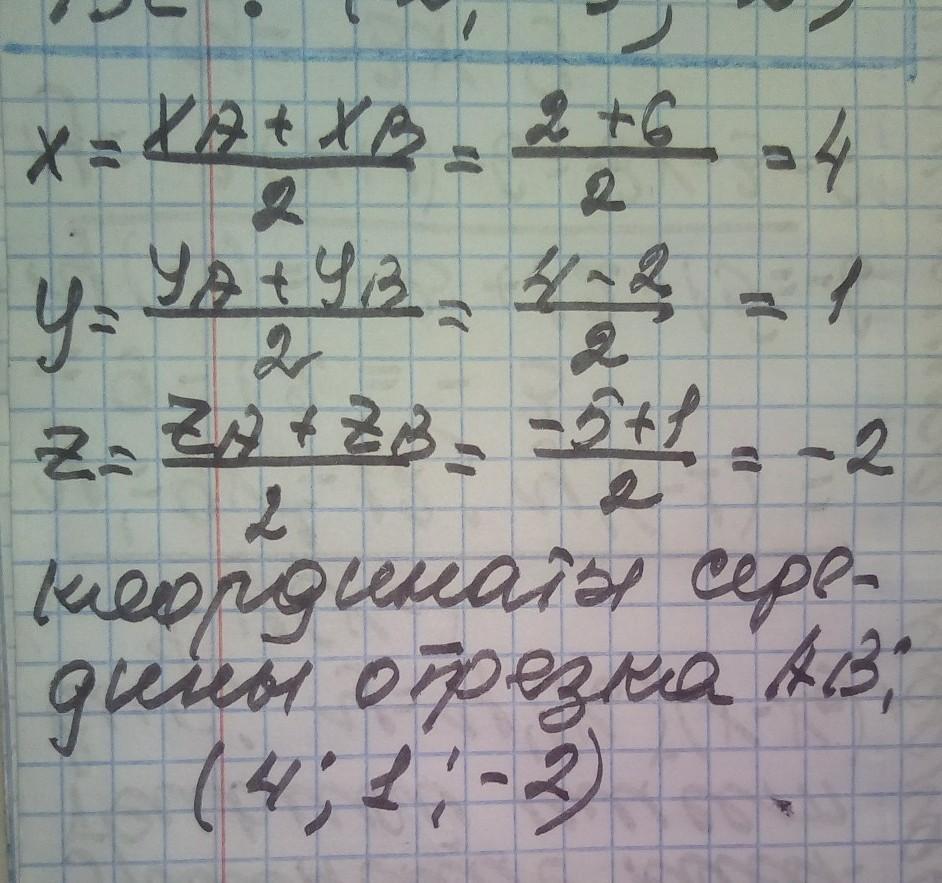 x = (xA + xB)/2 = (2 + 6)/2 = 4
y = (yA + yB)/2 = (4 - 2)/2 = 1
z = (zA + zB)/2 = (-5 + 1)/2 = -2
координаты сере-
дины отрезка AB:
(4; 1; -2)